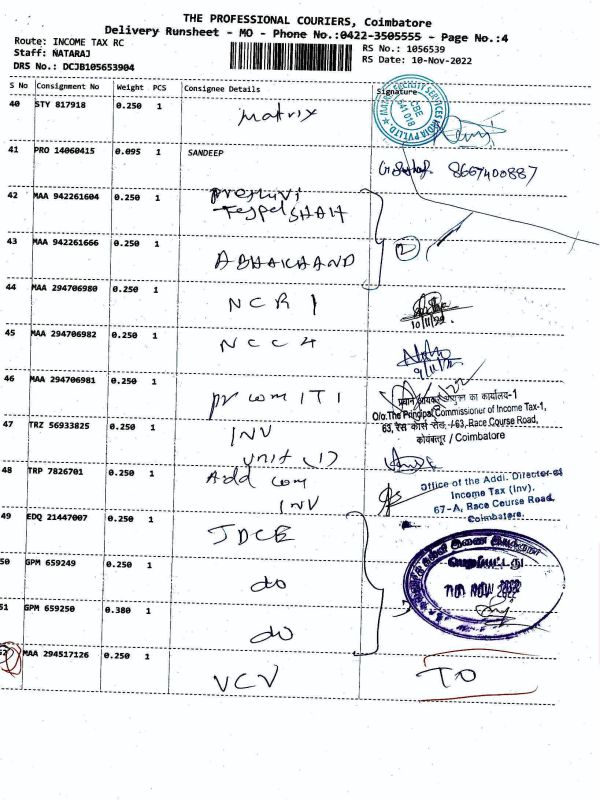 THE PROFESSIONAL COURIERS, Coimbatore
Delivery Runsheet - MO - Phone No.:0422-3505555 - Page No.:4
Route: INCOME TAX RC
RS No.: 1056539
Staff: NATARAJ
RS Date: 10-Nov-2022
DRS No.: DCJB105653904
S No Consignment No Weight PCS Consignee Details Signature
40 STY 817918 0.250 1 Matrix
41 PRO 14060415 0.095 1 SANDEEP 8667400887
42 MAA 942261604 0.250 1
SHAH
43 MAA 942261666 0.250 1 ABHAICHAND 2
44 MAA 294706980 0.250 1 NCR 1
10/11/22.
45 MAA 294706982 0.250 1 NCC 4
46 MAA 294706981 0.250 1 pr com IT 1
प्रधान आयकर आयुक्त का कार्यालय-1
O/o.The Principal Commissioner of Income Tax-1,
63, रेस कोर्स रोड, / 63, Race Course Road,
कोयंबत्तूर / Coimbatore
47 TRZ 56933825 0.250 1 INV
unit (1)
48 TRP 7826701 0.250 1 Add com
INV
Office of the Addl. Director of
Income Tax (Inv).
67-A, Race Course Road,
Coimbatore.
49 EDQ 21447007 0.250 1 JDCE
50 GPM 659249 0.250 1 do
பெறப்பட்டது
NOV 2022
51 GPM 659250 0.380 1 do
52 MAA 294517126 0.250 1 VCV TO